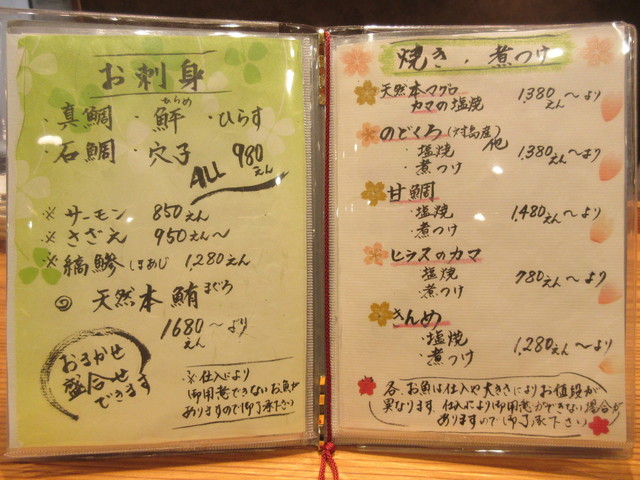 お刺身
・真鯛 ・鮃 ひらめ ・ひらす
・石鯛 ・穴子 ALL 980えん
※ サーモン 850えん
※ さざえ 950えん〜
※ 縞鯵 しまあじ 1,280えん
天然本鮪 まぐろ
1680えん〜より
おまかせ
盛合せ
できます
※仕入により
御用意できないお魚が
ありますので御了承下さい
焼き・煮つけ
天然本マグロ
カマの塩焼 1,380えん〜より
のどくろ(対馬産)他
・塩焼
・煮つけ 1,380えん〜より
甘鯛
・塩焼
・煮つけ 1,480えん〜より
ヒラスのカマ
塩焼
・煮つけ 780えん〜より
きんめ
・塩焼
・煮つけ 1,280えん〜より
各、お魚は仕入や大きさによりお値段が
異なります。仕入により御用意ができない場合が
ありますので御了承下さい